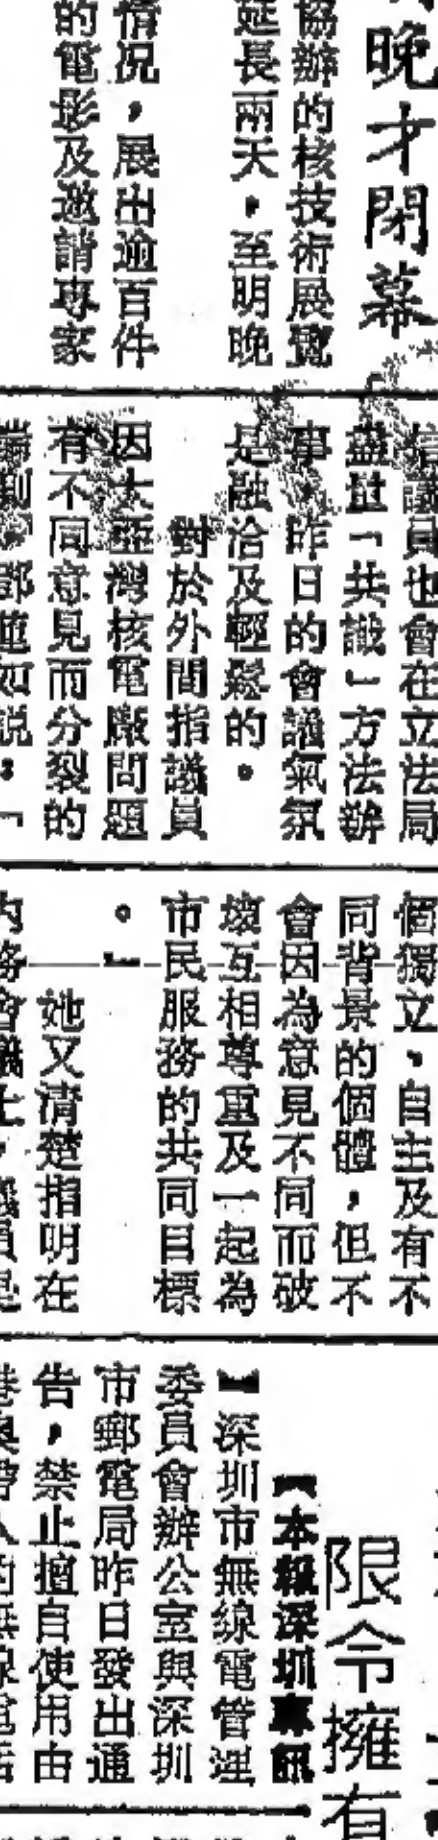 晚才閉幕
協辦的核技術展覽
延長兩天，至明晚
情況，展出逾百件
的電影及邀請專家
信議員也會在立法局
盡量「共識」方法辦
事，昨日的會議氣氛
是融洽及輕鬆的。
對於外間指議員
因大亞灣核電廠問題
有不同意見而分裂的
端倪，鄧蓮如說：「
個獨立、自主及有不
同背景的個體，但不
會因為意見不同而破
壞互相尊重及一起為
市民服務的共同目標
。」
她又清楚指明在
內務會議上，議員是
限令擁有
【本報深圳專訊
】深圳市無線電管理
委員會辦公室與深圳
市郵電局昨日發出通
告，禁止擅自使用由
港澳帶入的無線電話